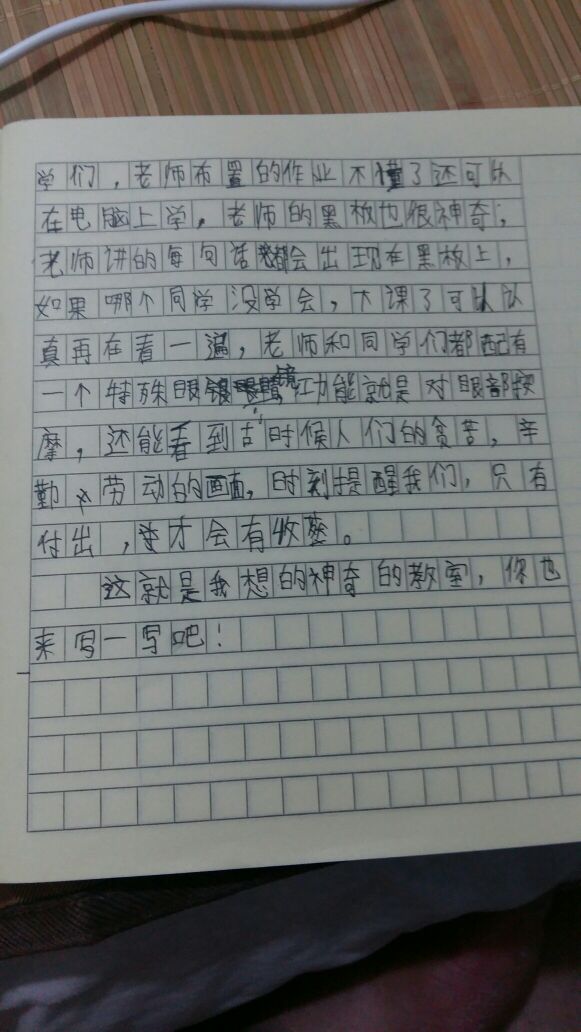 学们，老师布置的作业不懂了还可以
在电脑上学，老师的黑板也很神奇，
老师讲的每句话都会出现在黑板上，
如果哪个同学没学会，下课了可以认
真再在看一遍，老师和同学们都配有
一个特殊眼镜功能就是对眼部按
摩，还能看到古时候人们的贫苦，辛
勤劳动的画面，时刻提醒我们，只有
付出，才会有收获。
这就是我想的神奇的教室，你也
来写一写吧！